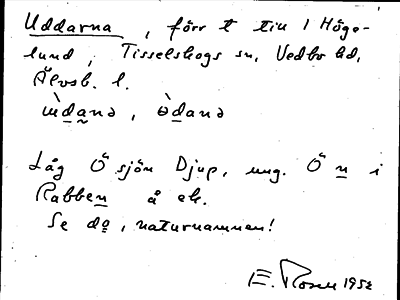 Uddarna, förr t tiu 1 Höge-
lund, Tisselskogs sn, Vedbo hd,
Älvsb. l.
ùdanə, ə̀danə
Låg Ö sjön Djup, ung. Ö n i
Rabben å ek.
Se do, naturnamnen!
E. Rosell 1952